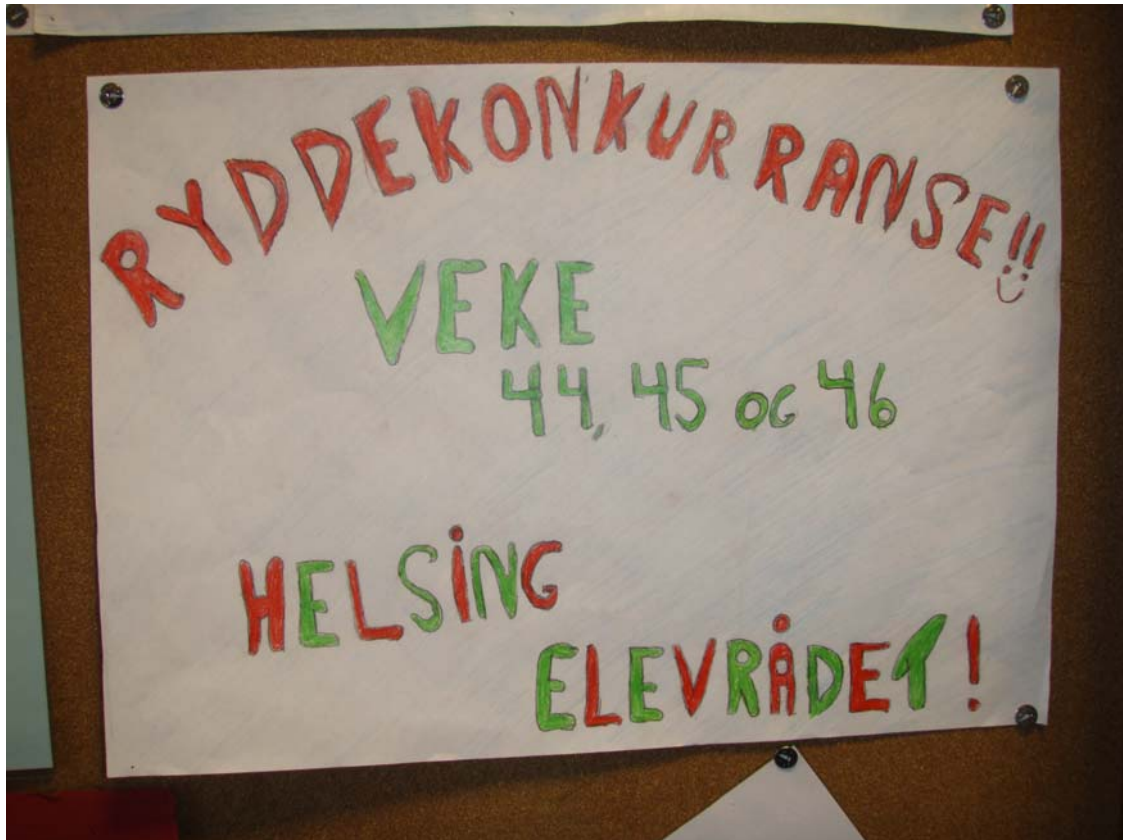 RYDDEKONKURRANSE!!
VEKE
44, 45 OG 46
HELSING
ELEVRÅDET!